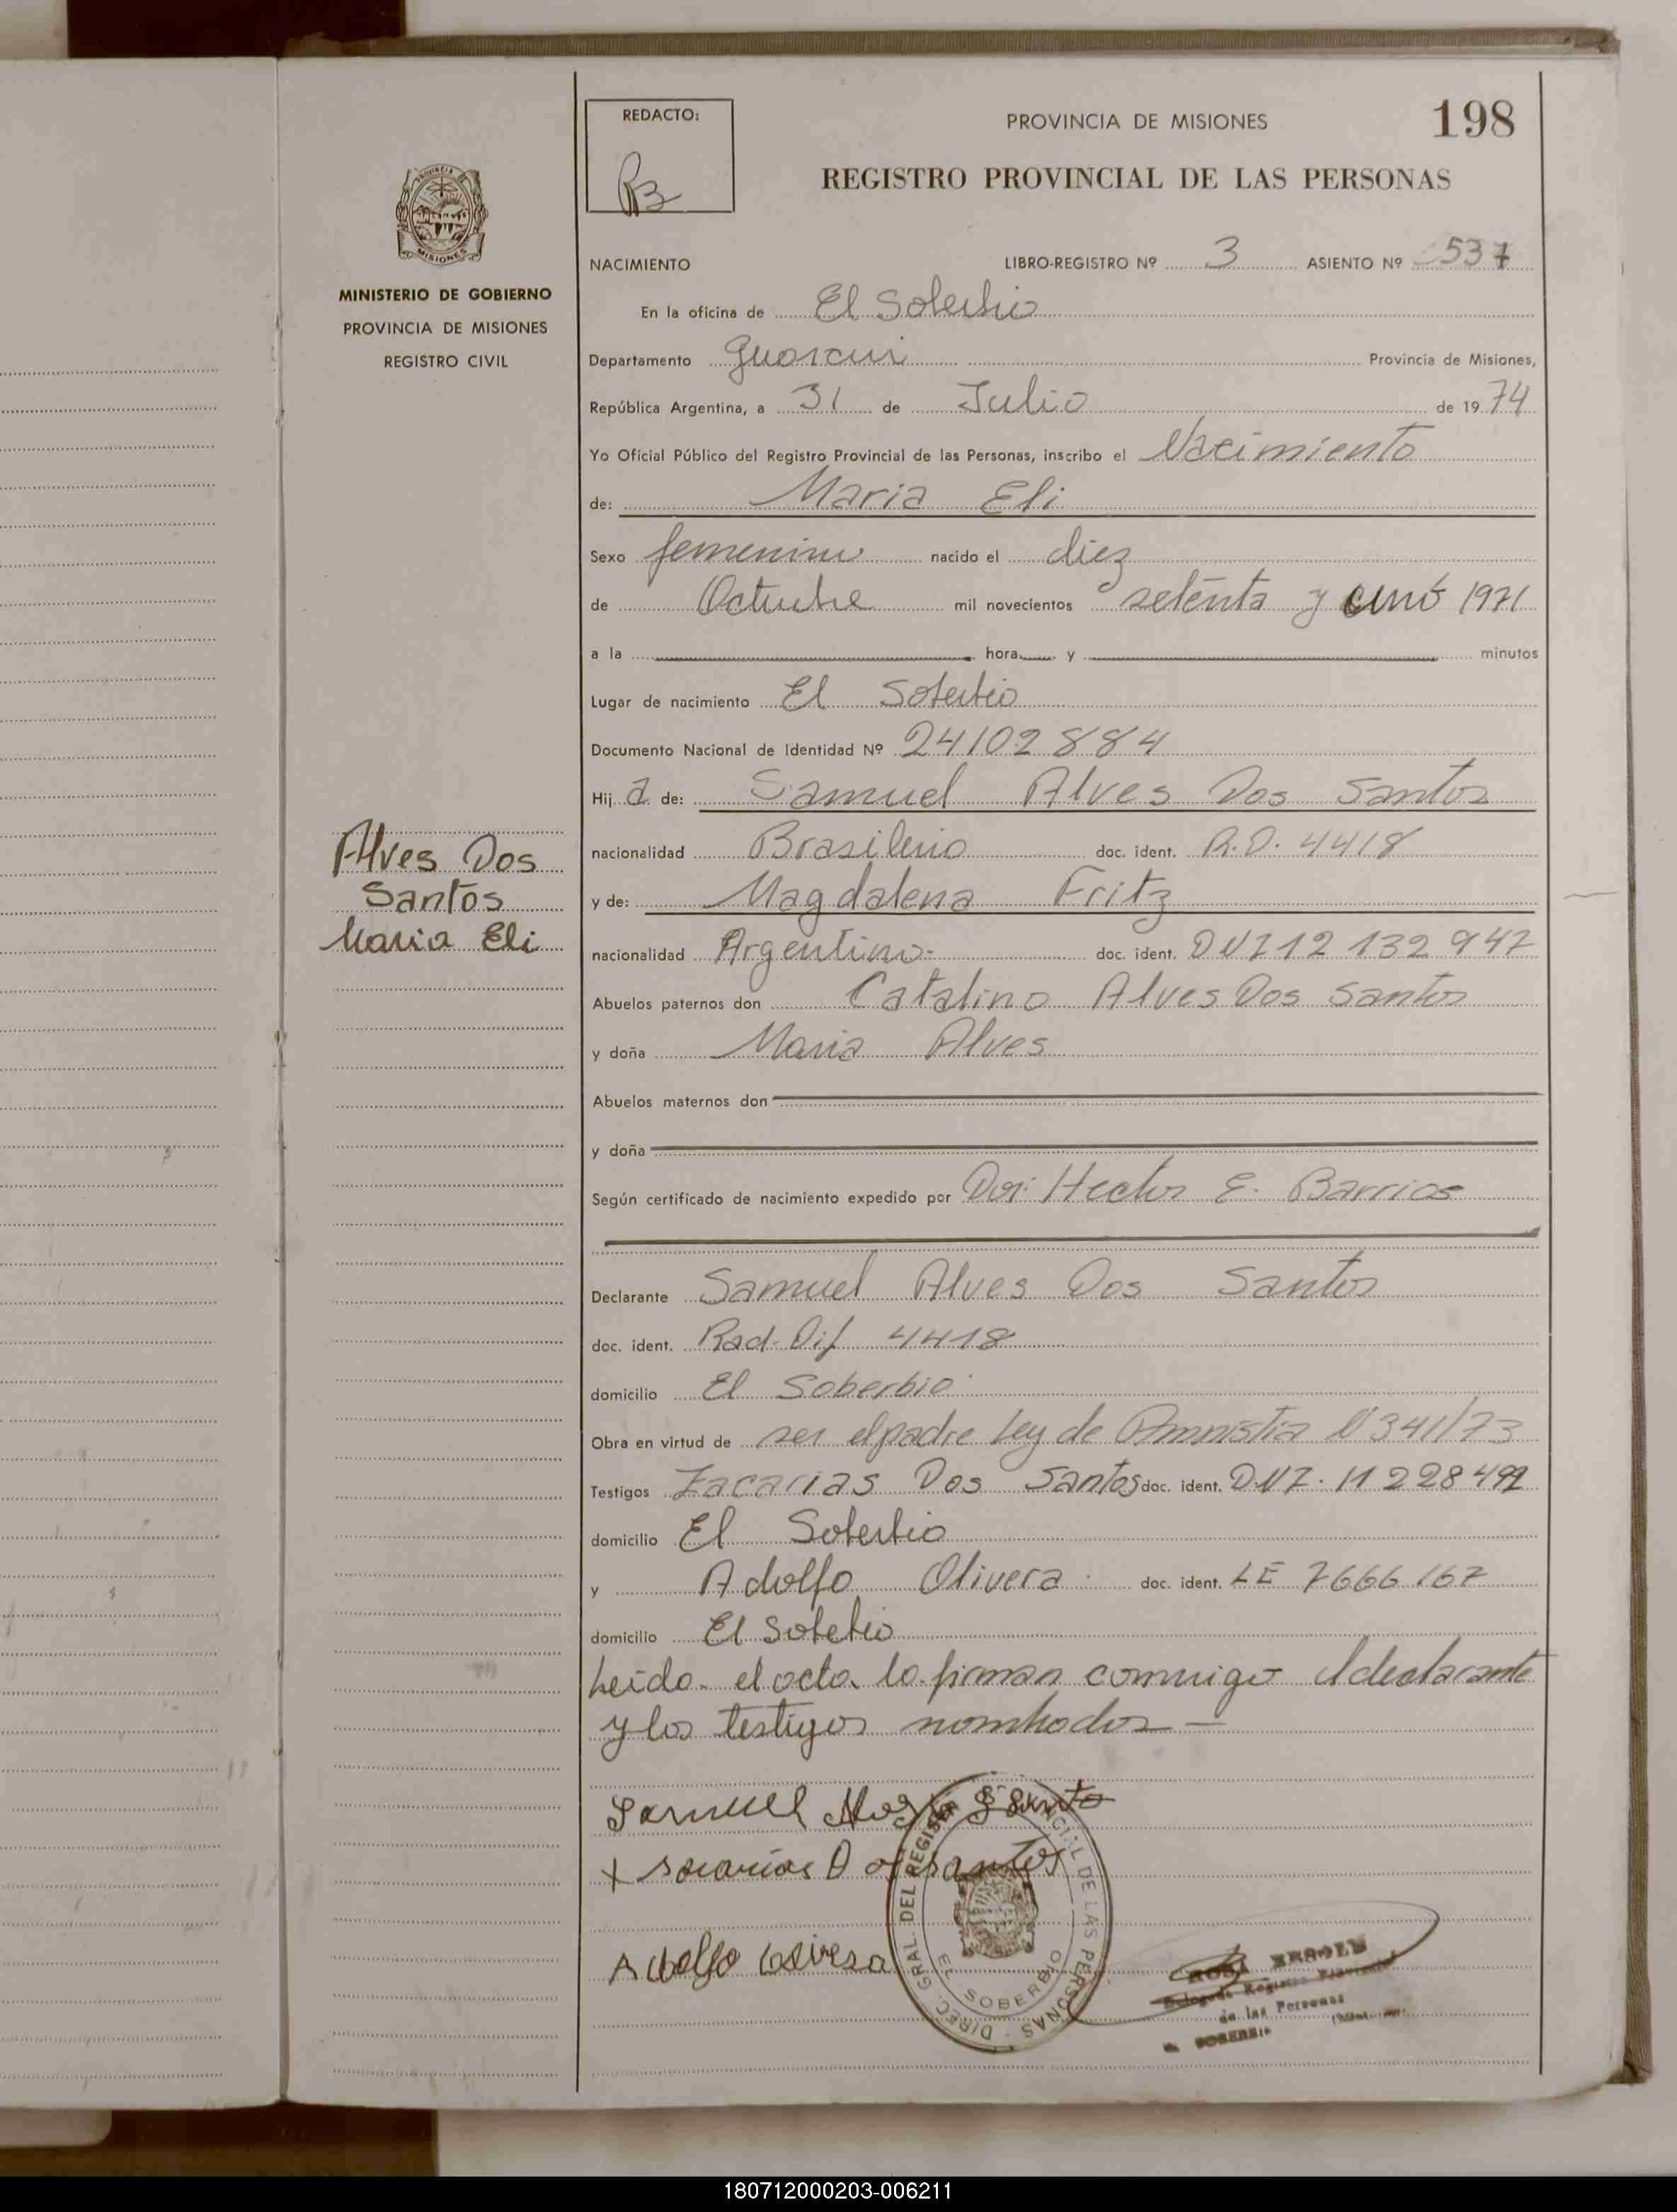 REDACTO:
PROVINCIA DE MISIONES
198
RB
REGISTRO PROVINCIAL DE LAS PERSONAS
PROVINCIA DE
MISIONES
MINISTERIO DE GOBIERNO
PROVINCIA DE MISIONES
REGISTRO CIVIL
NACIMIENTO LIBRO-REGISTRO Nº 3 ASIENTO Nº 537
En la oficina de El Soberbio
Departamento Guarani Provincia de Misiones,
República Argentina, a 31 de Julio de 1974
Yo Oficial Público del Registro Provincial de las Personas, inscribo el Nacimiento
de: Maria Eli
Sexo femenino nacido el diez
de Octubre mil novecientos setenta y uno 1971
a la hora y minutos
Lugar de nacimiento El Soberbio
Documento Nacional de Identidad Nº 24102884
Hij a de: Samuel Alves Dos Santos
nacionalidad Brasileño doc. ident. R.D. 4418
y de: Magdalena Fritz
nacionalidad Argentino.- doc. ident. DNI 12 132 947
Abuelos paternos don Catalino Alves Dos Santos
y doña Maria Alves
Abuelos maternos don
y doña
Según certificado de nacimiento expedido por Dor: Hector E. Barrios
Alves Dos
Santos
Maria Eli
Declarante Samuel Alves Dos Santos
doc. ident. Rad-Dif 4418
domicilio El Soberbio
Obra en virtud de ser el padre Ley de Amnistia Nº 341/73
Testigos Zacarias Dos Santos doc. ident. DNI. 11 228 499
domicilio El Soberbio
y Adolfo Olivera doc. ident. LE 7666167
domicilio El Soberbio
Leido. el acta lo firman conmigo el declarante
y los testigos nombrados —
Samuel Santo
+ santos
Adolfo
DIREC. GRAL. DEL REGISTRO PROVINCIAL DE LAS PERSONAS
EL SOBERBIO
Delegada Registro Provincial
de las Personas
SOBERBIO
180712000203-006211